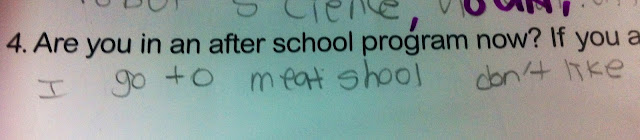 science,
4. Are you in an after school program now? If you a
I go to meat shool don't like